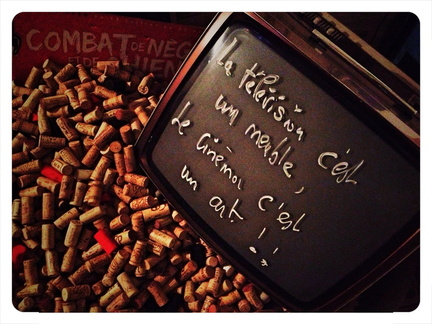 COMBAT DE NEG
ET DE CHIEN
La télévision c'est
un meuble,
Le cinéma c'est
un art !